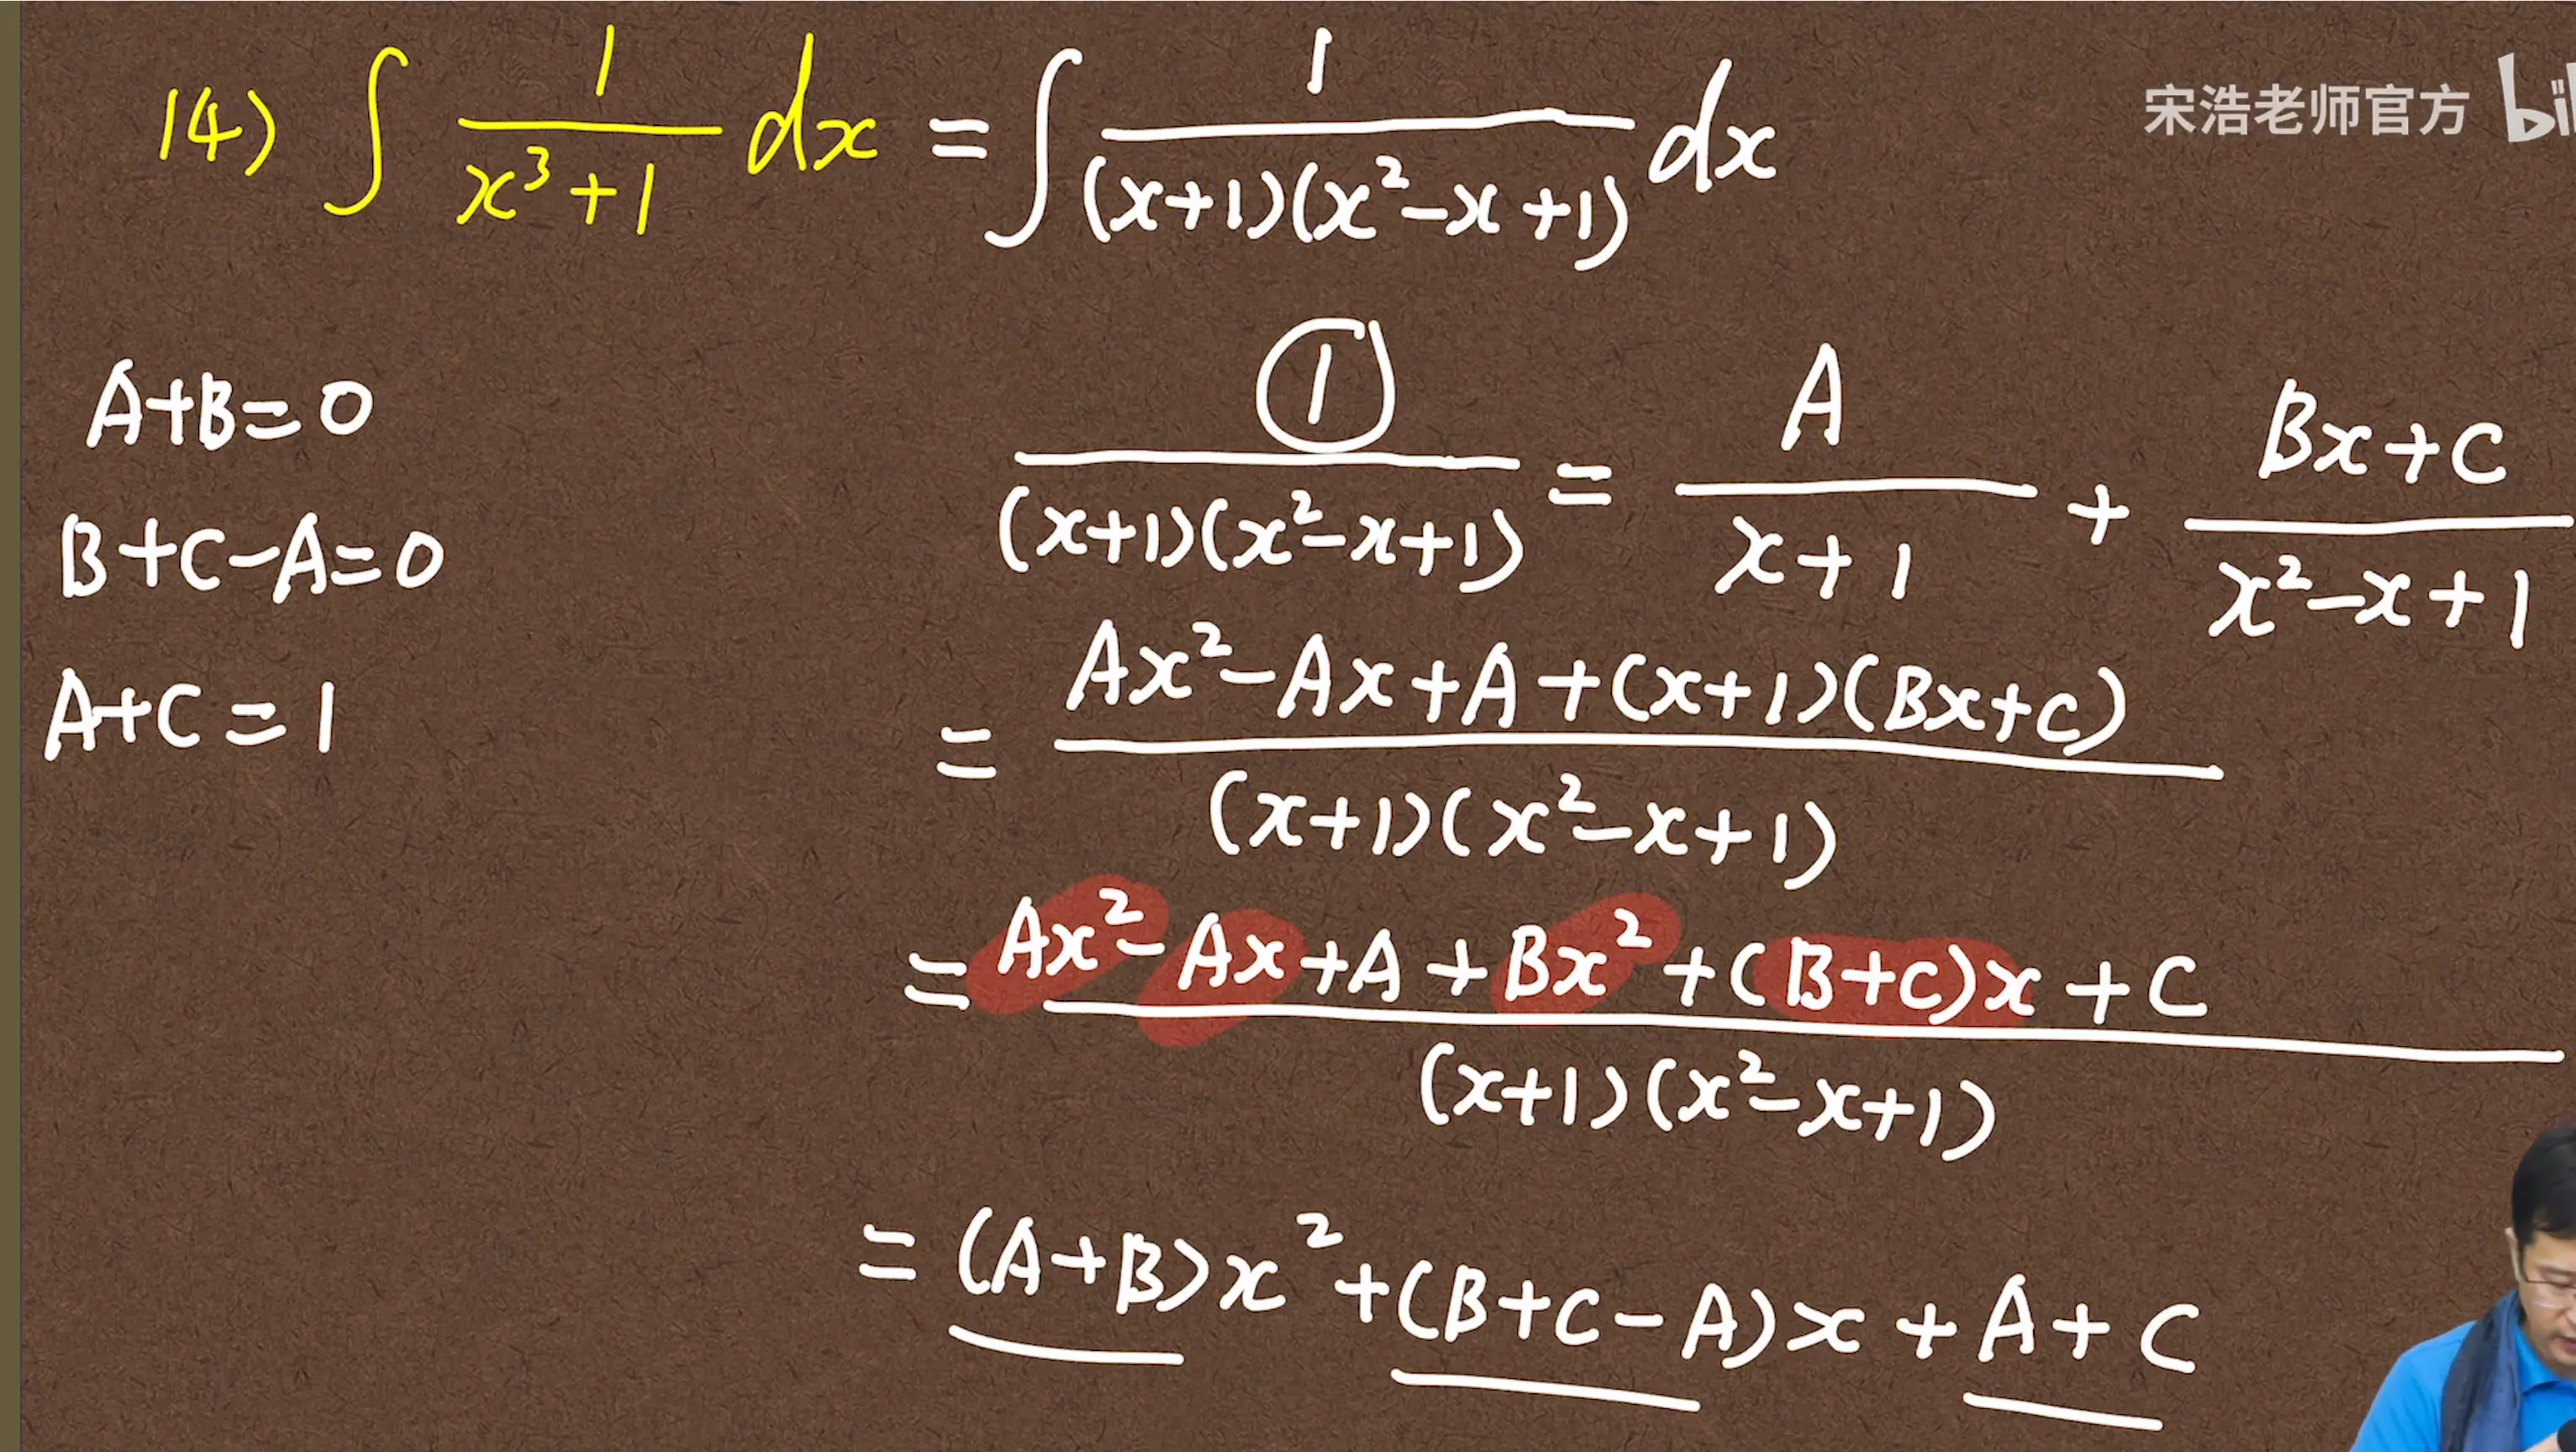 14) ∫ 1/(x³+1) dx = ∫ 1/((x+1)(x²-x+1)) dx
宋浩老师官方
A+B=0
B+C-A=0
A+C=1
①/((x+1)(x²-x+1)) = A/(x+1) + (Bx+C)/(x²-x+1)
= (Ax²-Ax+A+(x+1)(Bx+C))/((x+1)(x²-x+1))
= (Ax²-Ax+A+Bx²+(B+C)x+C)/((x+1)(x²-x+1))
= (A+B)x²+(B+C-A)x+A+C